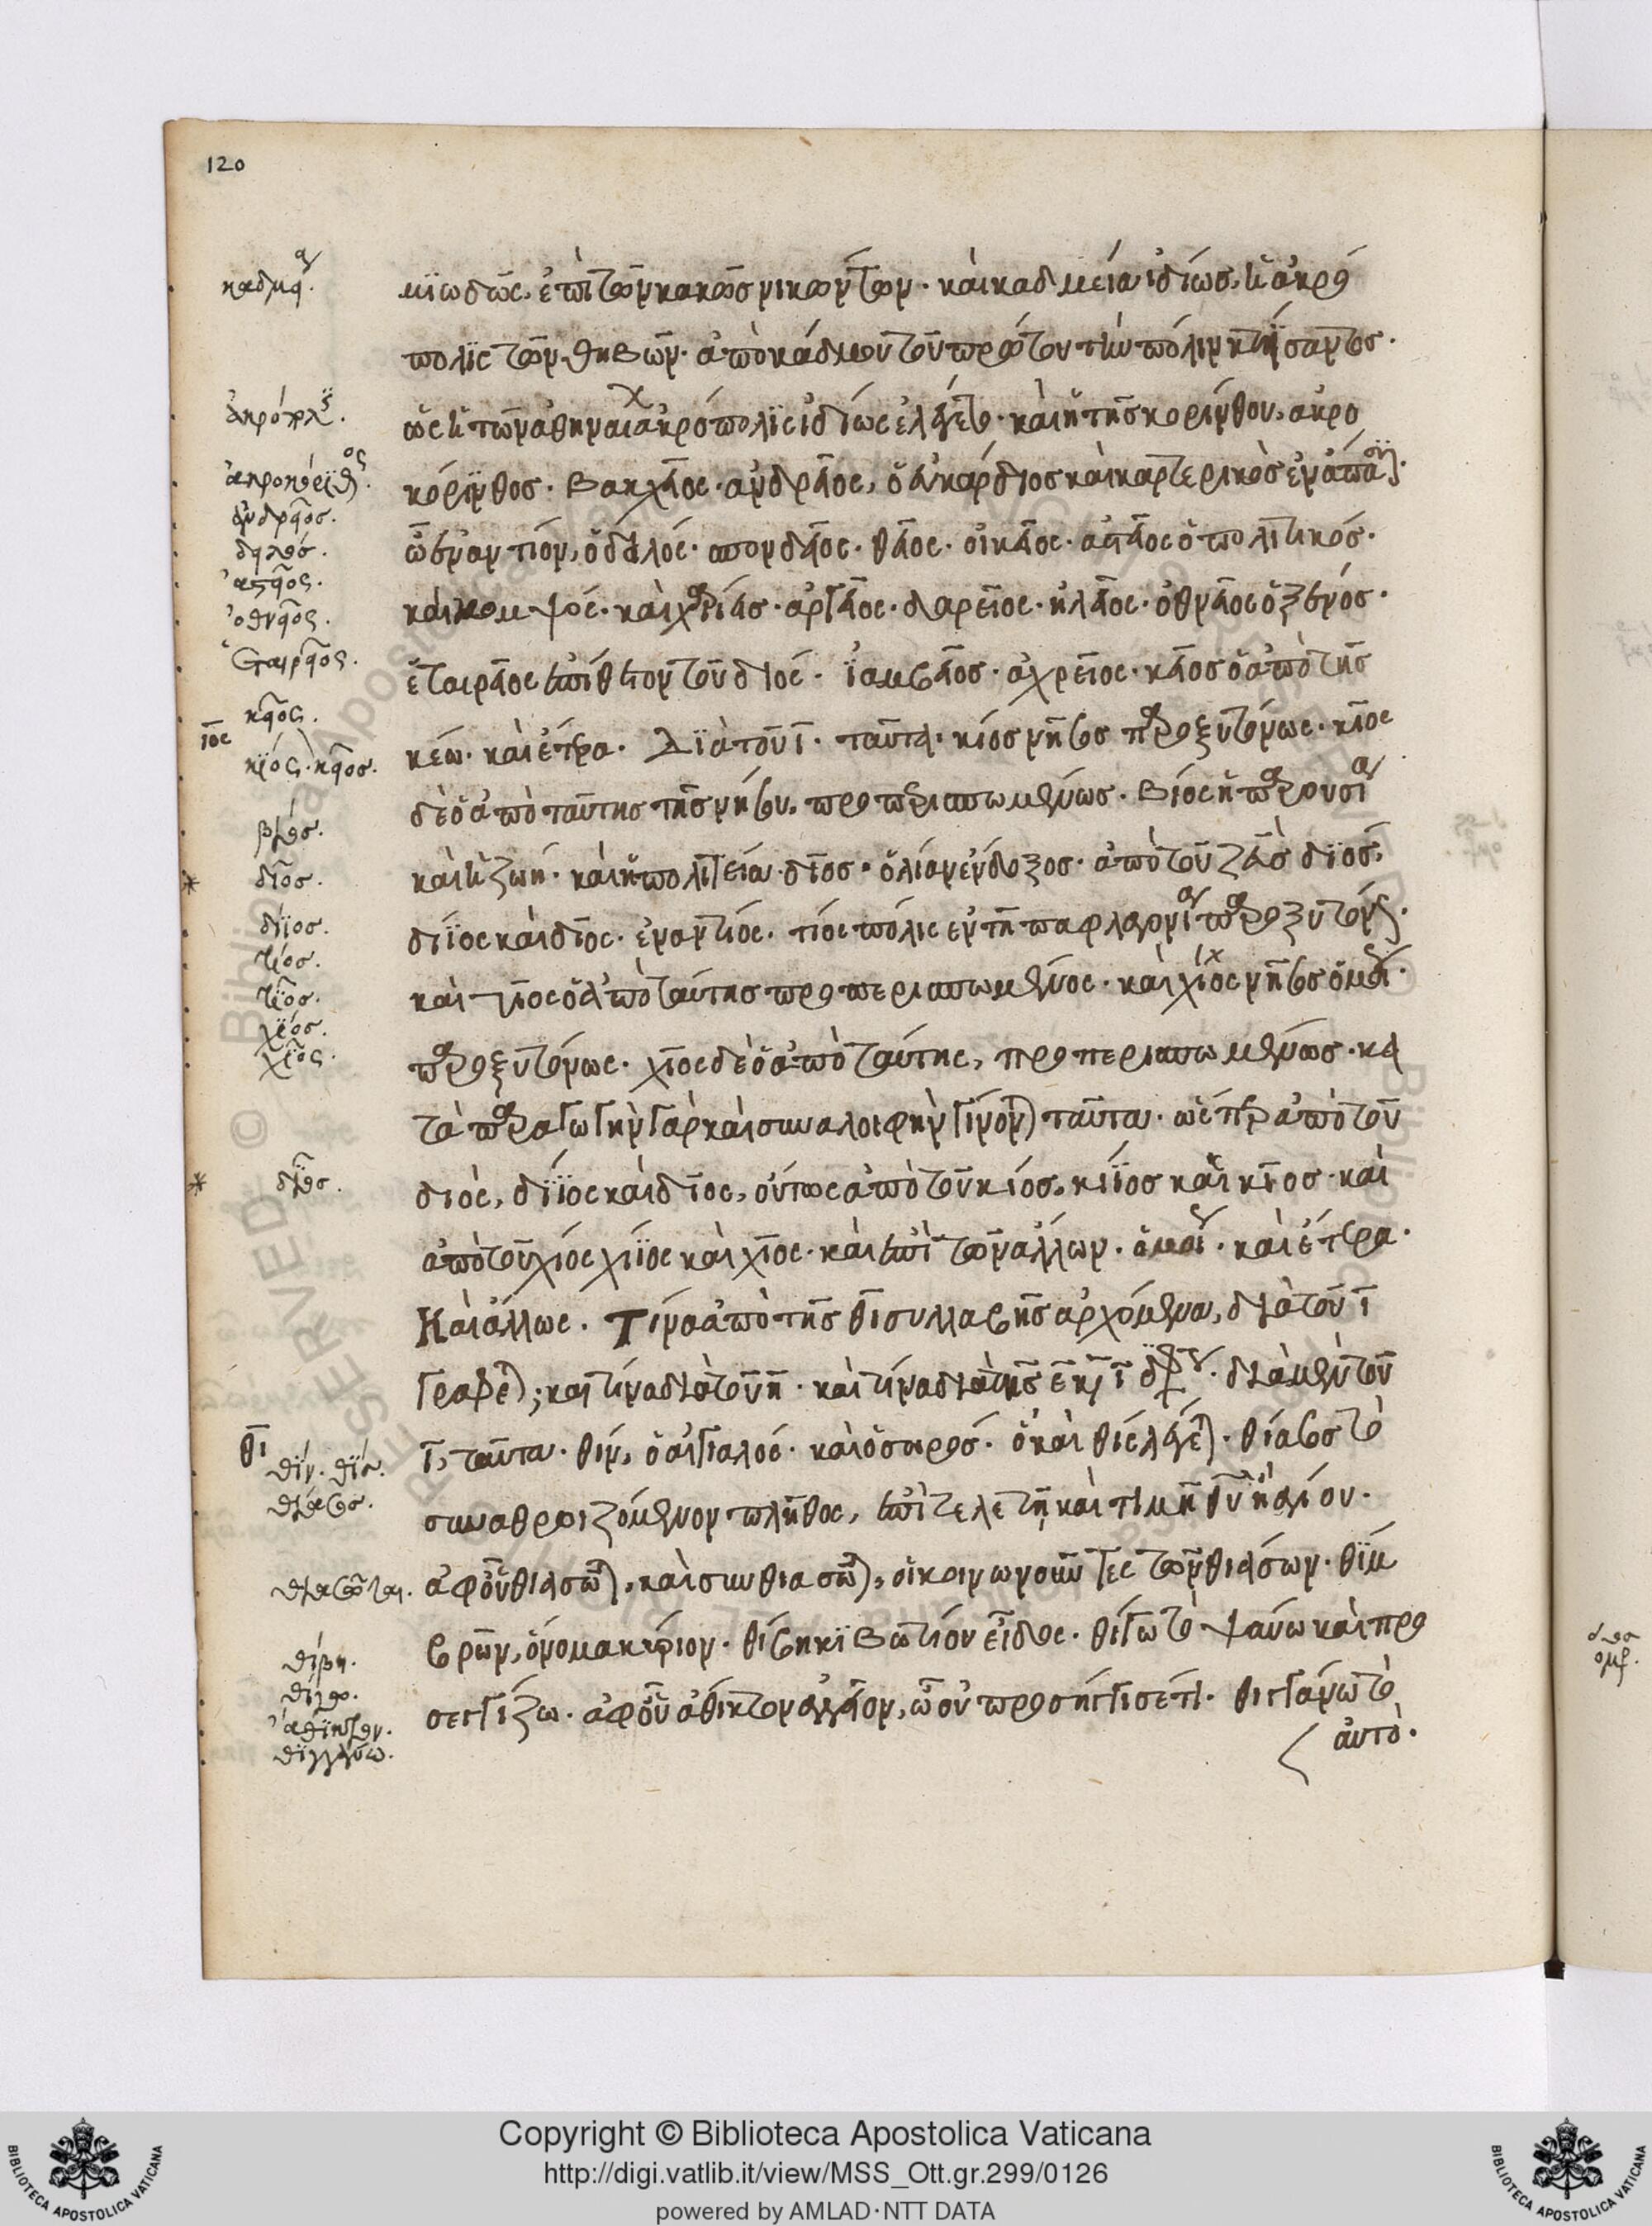 120
μϊωδῶς, ἐπὶ τῶν κακῶς νικώντων. καὶ καδμεία ἰδίως, ἡ ἀκρό
πολϊς τῶν θηβῶν. ἀπὸ κάδμου τοῦ πρώτου τὴν πόλιν κτήσαντος.
ὡς ἡ τῶν ἀθηναί ἀκρόπολϊς ἰδίως ἐλέγετο. καὶ ἡ τῆς κορίνθου, ἀκρο
κόρϊνθος. βακχεῖος. ἀνδρεῖος, ὁ εὐκάρδιος καὶ καρτερικὸς ἐν ἅπασιν.
ὧ ἐναντίον, ὁ δειλός. σπονδεῖος. θεῖος. οἰκεῖος. ἀστεῖος ὁ πολιτικός.
καὶ κομψός. καὶ χαρίεις. ἀργεῖος. δαρεῖος. ἠλεῖος. ὀθνεῖος ὁ ξένος.
ἑταιρεῖος ἐπίθετον τοῦ διός. ἰαμβεῖος. ἀχρεῖος. κεῖος ὁ ἀπὸ τῆς
κέω. καὶ ἕτερα. Διὰ τοῦ ι ταῦτα. κίος νῆσος παροξυτόνως. κῖος
δὲ ὁ ἀπὸ ταύτης τῆς νήσου, προπερισπωμένως. βίος ἡ παρουσία
καὶ ἡ ζωή. καὶ ἡ πολιτεία. δῖος. ὁ λίαν ἔνδοξος. ἀπὸ τοῦ ζεὺς διός,
δίϊος καὶ δῖος. ἐναντίος. τίος πόλις ἐν τῇ παφλαγονίᾳ παροξυτόνως.
καὶ τῖος ὁ ἀπὸ ταύτης προπερισπωμένως. καὶ χίος νῆσος ὁμοί.
παροξυτόνως. χῖος δὲ ὁ ἀπὸ ταύτης, προπερισπωμένως. κα
τὰ παραγωγὴν γὰρ καὶ συναλοιφὴν γίνονται ταῦτα. ὥσπερ ἀπὸ τοῦ
διός, δίϊος καὶ δῖος, οὕτως ἀπὸ τοῦ κίος, κίϊος καὶ κῖος. καὶ
ἀπὸ τοῦ χίος χίϊος καὶ χῖος. καὶ ἐπὶ τῶν ἄλλων. ὁμοί. καὶ ἕτερα.
Καὶ ἄλλως. Τίνα ἀπὸ τῆς θι συλλαβῆς ἀρχόμενα, διὰ τοῦ ι
γράφεται; καὶ τίνα διὰ τοῦ η. καὶ τίνα διὰ τῆς ε καὶ ι διφθόγγου. διὰ μὲν τοῦ
ι, ταῦτα. θίν, ὁ αἰγιαλός. καὶ ὁ σωρός. ὃ καὶ θὶς λέγεται. θίασος τὸ
συναθροιζόμενον πλῆθος, ἐπὶ τελετῇ καὶ τιμῇ
ἀφ' οὗ θιασῶται, καὶ συνθιασῶται, οἱ κοινωνοῦντες τῶν θιάσων. θίμ
βρων, ὄνομα κύριον. θίβη κιβώτιον εἶδος. θίγω τὸ ψαύω καὶ προ
σεγγίζω. ἀφ' οὗ ἄθικτον ἀγγεῖον, ὧ οὐ προσήγγισέ τι. θιγγάνω τὸ
αὐτό.
καδμεία.
ἀκρόπολϊς.
ἀκροκόρϊνθος.
ἀνδρεῖος.
δειλός.
ἀστεῖος.
ὀθνεῖος.
ἑταιρεῖος.
κεῖος.
ιος
κίος. κεῖος.
βίος.
δῖος.
δίϊος.
τίος.
τῖος.
χίος.
χῖος.
δῖος.
θι
θίν. θίς.
θίασος.
θιασῶται.
θίβη.
θίγω.
ἄθϊκτον.
θιγγάνω.
Copyright © Biblioteca Apostolica Vaticana
http://digi.vatlib.it/view/MSS_Ott.gr.299/0126
powered by AMLAD·NTT DATA
BIBLIOTECA APOSTOLICA VATICANA
BIBLIOTECA APOSTOLICA VATICANA